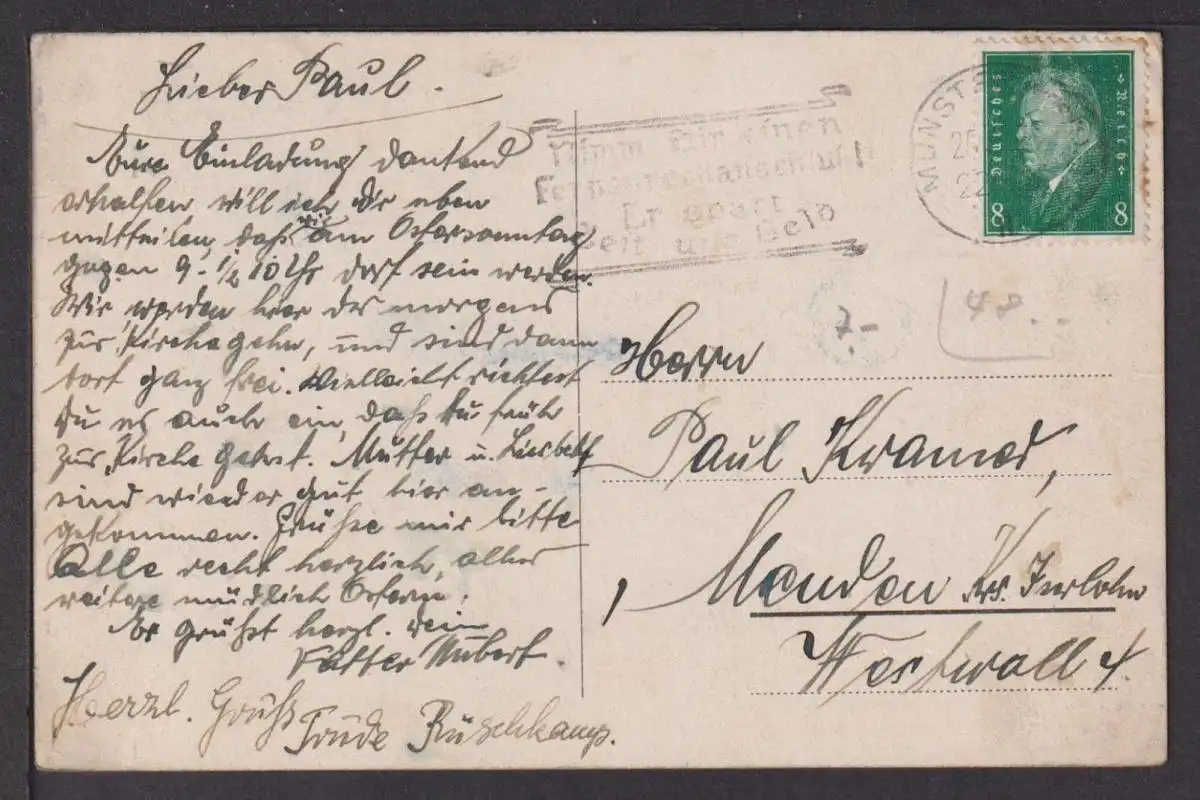 Lieber Paul.
Eure Einladung dankend
erhalten will ich Dir eben
mitteilen, daß wir am Ostersonntag
gegen 9-½ 10 Uhr dort sein werden.
Wir werden hier des morgens
zur Kirche gehn, und sind dann
dort ganz frei. Vielleicht richtest
Du es auch ein, daß Du früh
zur Kirche gehst. Mutter u. Liesbeth
sind wieder gut hier an-
gekommen. Grüße mir bitte
Alle recht herzlich, alles
weitere mündlich Ostern.
Es grüßt herzl. Dein
Vetter Hubert.
Herzl. Gruß
Trude Rüschkamp.
Nimm Dir einen
Fernsprechanschluß!
Er spart
Zeit und Geld
MÜNSTER
25
22
Deutsches Reich
8 8
7.-
40
Herrn
Paul Kramer,
Menden Krs. Iserlohn
Westwall 4.